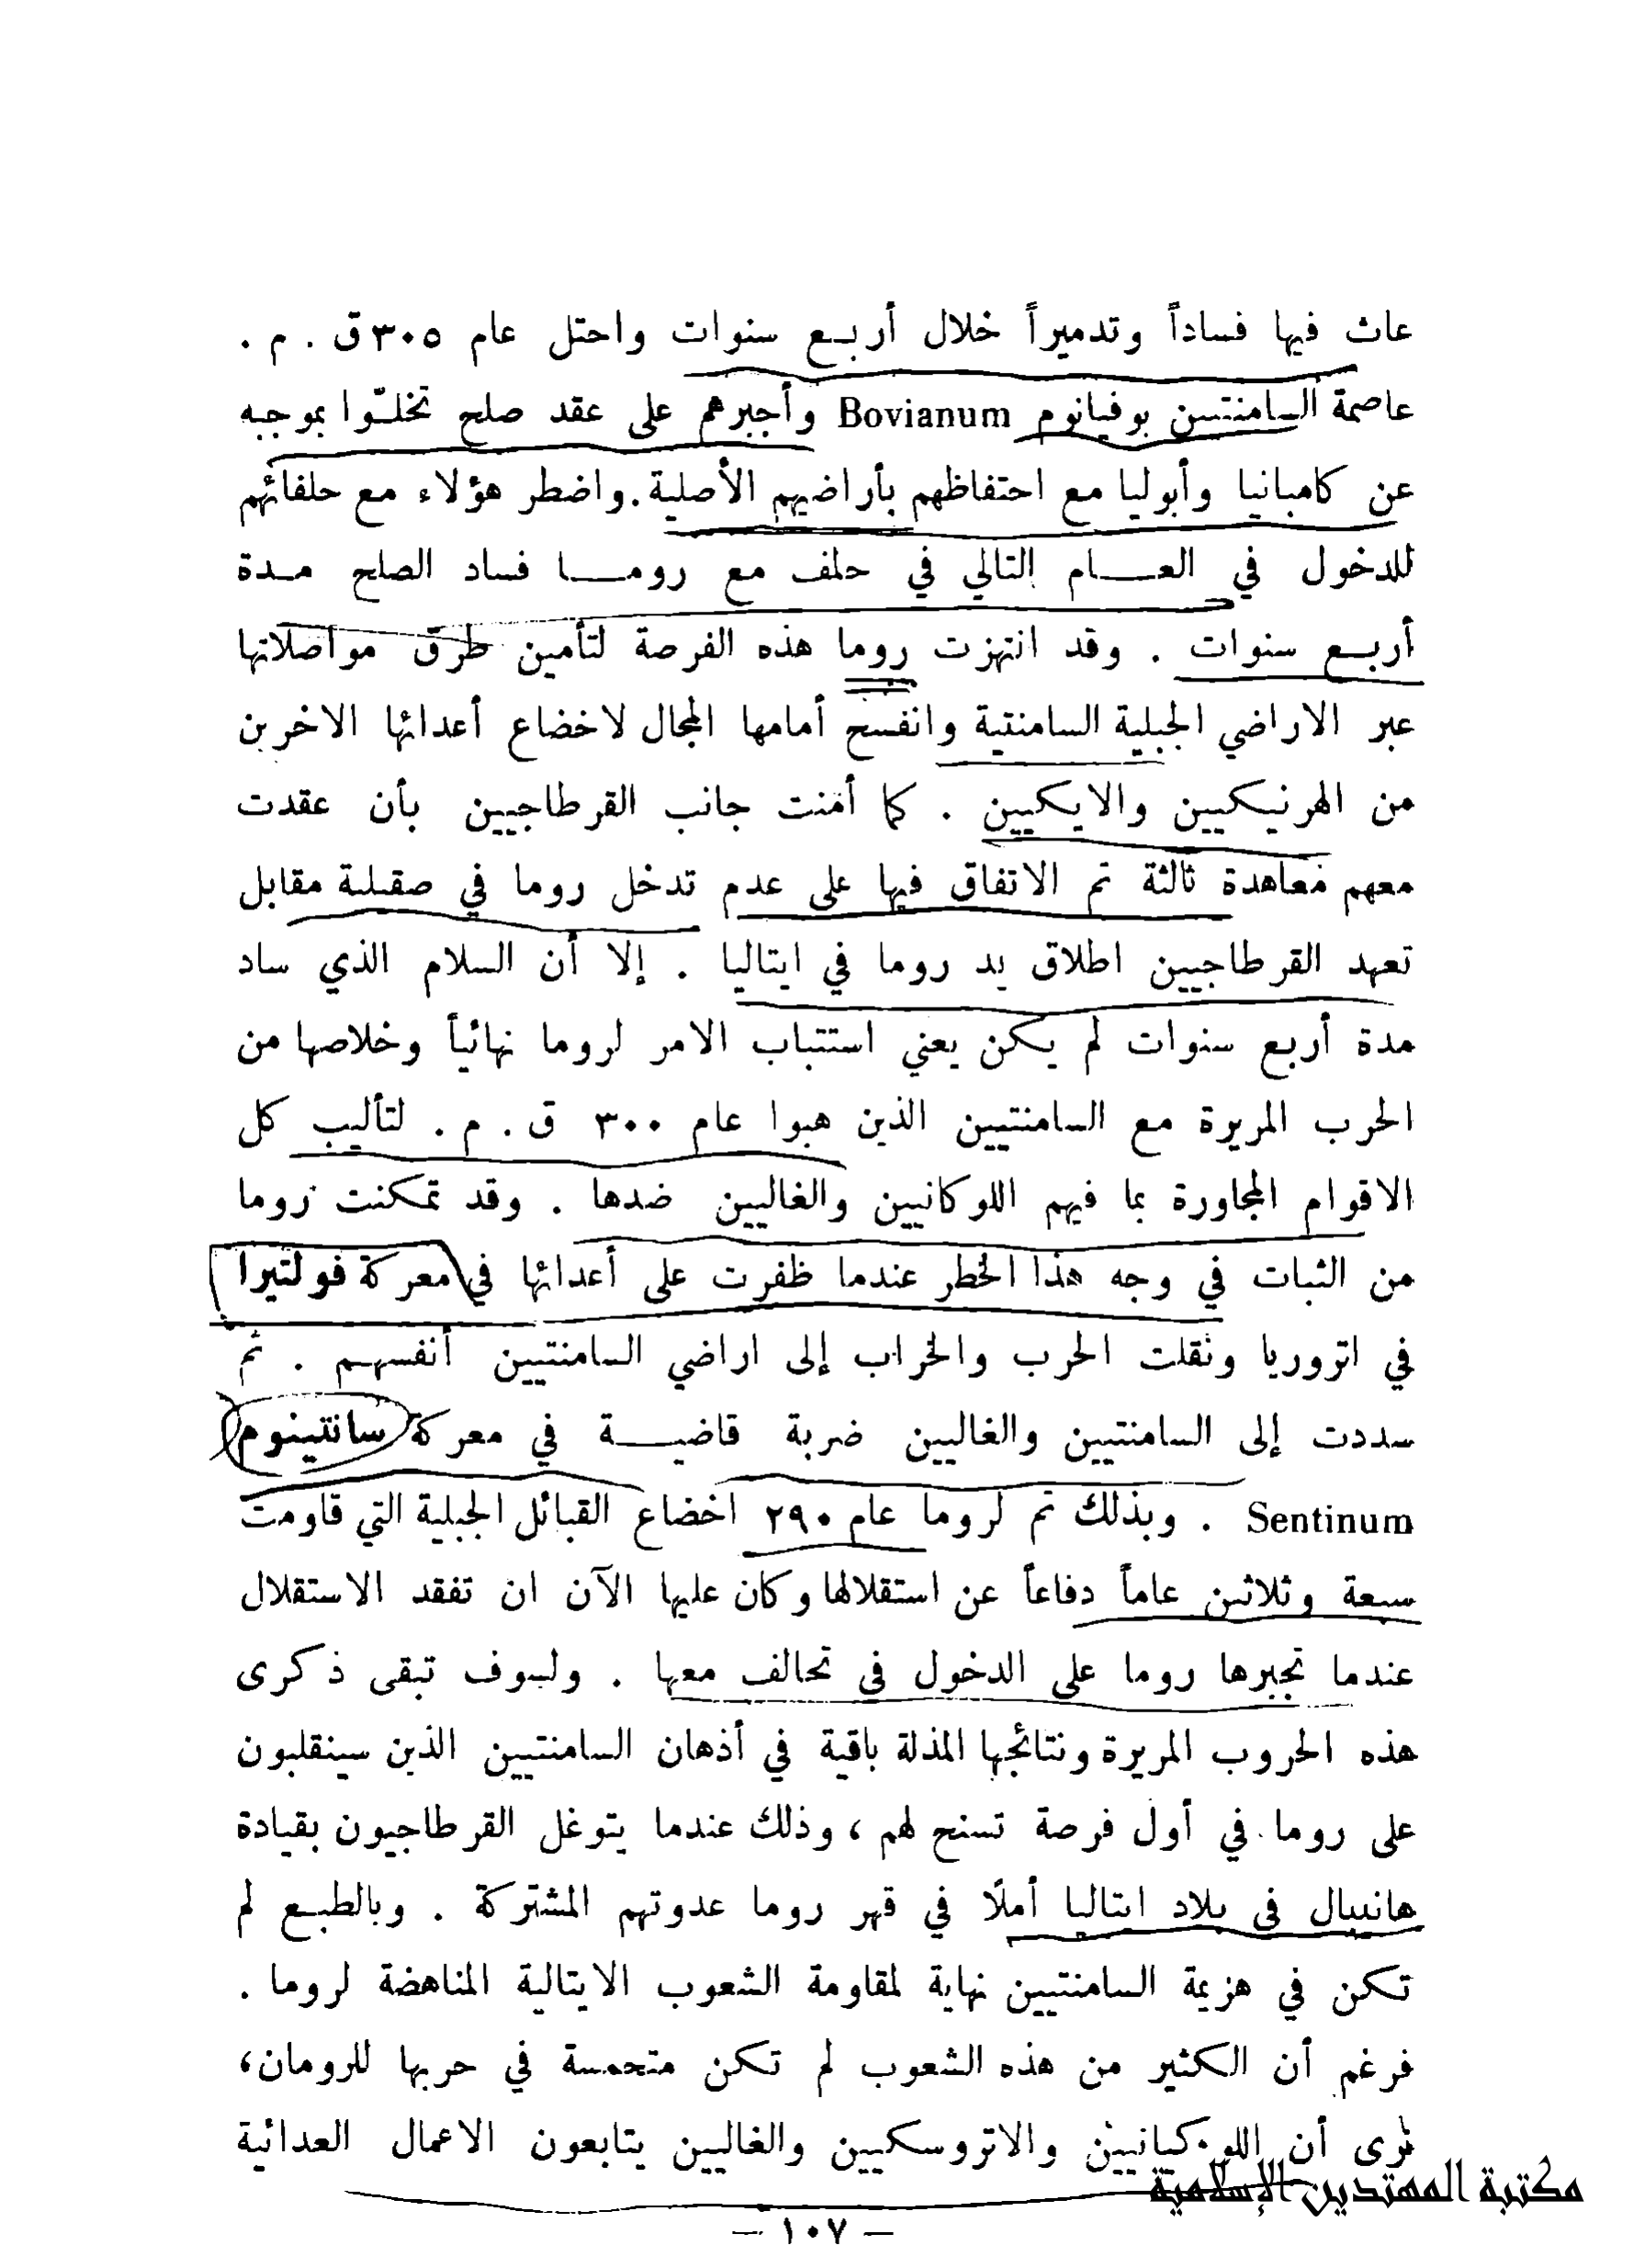 عاث فيها فساداً وتدميراً خلال أربـع سنوات واحتل عام ٣٠٥ ق . م .
عاصمة السامنتيين بوفيانوم Bovianum وأجبرهم على عقد صلح تخلّوا بموجبه
عن كامبانيا وأبوليا مع احتفاظهم بأراضيهم الأصلية . واضطر هؤلاء مع حلفائهم
للدخول في العـــام التالي في حلف مع رومـــا فساد الصلح مـدة
أربـع سنوات . وقد انتهزت روما هذه الفرصة لتأمين طرق مواصلاتها
عبر الاراضي الجبلية السامنتية وانفسح أمامها المجال لاخضاع أعدائها الاخرين
من الهرنيكيين والايكيين . كما أمنت جانب القرطاجيين بأن عقدت
معهم معاهدة ثالثة تم الاتفاق فيها على عدم تدخل روما في صقلية مقابل
تعهد القرطاجيين اطلاق يد روما في ايتاليا . إلا أن السلام الذي ساد
مدة أربع سنوات لم يكن يعني استتباب الامر لروما نهائياً وخلاصها من
الحرب المريرة مع السامنتيين الذين هبوا عام ٣٠٠ ق . م . لتأليب كل
الاقوام المجاورة بما فيهم اللوكانيين والغاليين ضدها . وقد تمكنت روما
من الثبات في وجه هذا الخطر عندما ظفرت على أعدائها في معركة فولتيرا
في اتروريا ونقلت الحرب والخراب إلى اراضي السامنتيين أنفسهـم . ثم
سددت إلى السامنتيين والغاليين ضربة قاضيـــة في معركة سانتينوم
Sentinum . وبذلك تم لروما عام ٢٩٠ اخضاع القبائل الجبلية التي قاومت
سبعة وثلاثين عاماً دفاعاً عن استقلالها وكان عليها الآن ان تفقد الاستقلال
عندما تجبرها روما على الدخول في تحالف معها . ولسوف تبقى ذكرى
هذه الحروب المريرة ونتائجها المذلة باقية في أذهان السامنتيين الذين سينقلبون
على روما في أول فرصة تسنح لهم ، وذلك عندما يتوغل القرطاجيون بقيادة
هانيبال في بلاد ايتاليا أملًا في قهر روما عدوتهم المشتركة . وبالطبـع لم
تكن في هزيمة السامنتيين نهاية لمقاومة الشعوب الايتالية المناهضة لروما .
فرغم أن الكثير من هذه الشعوب لم تكن متحمسة في حربها للرومان،
نرى أن اللوكيانيين والاتروسكيين والغاليين يتابعون الاعمال العدائية
مكتبة المهتدين الإسلامية
— ١٠٧ —